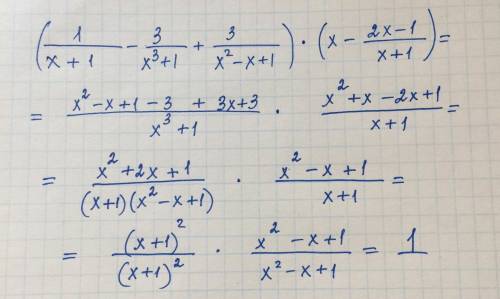 (1/(x+1) - 3/(x³+1) + 3/(x²-x+1)) · (x - (2x-1)/(x+1)) =
= (x²-x+1-3+3x+3)/(x³+1) · (x²+x-2x+1)/(x+1) =
= (x²+2x+1)/((x+1)(x²-x+1)) · (x²-x+1)/(x+1) =
= (x+1)²/(x+1)² · (x²-x+1)/(x²-x+1) = 1